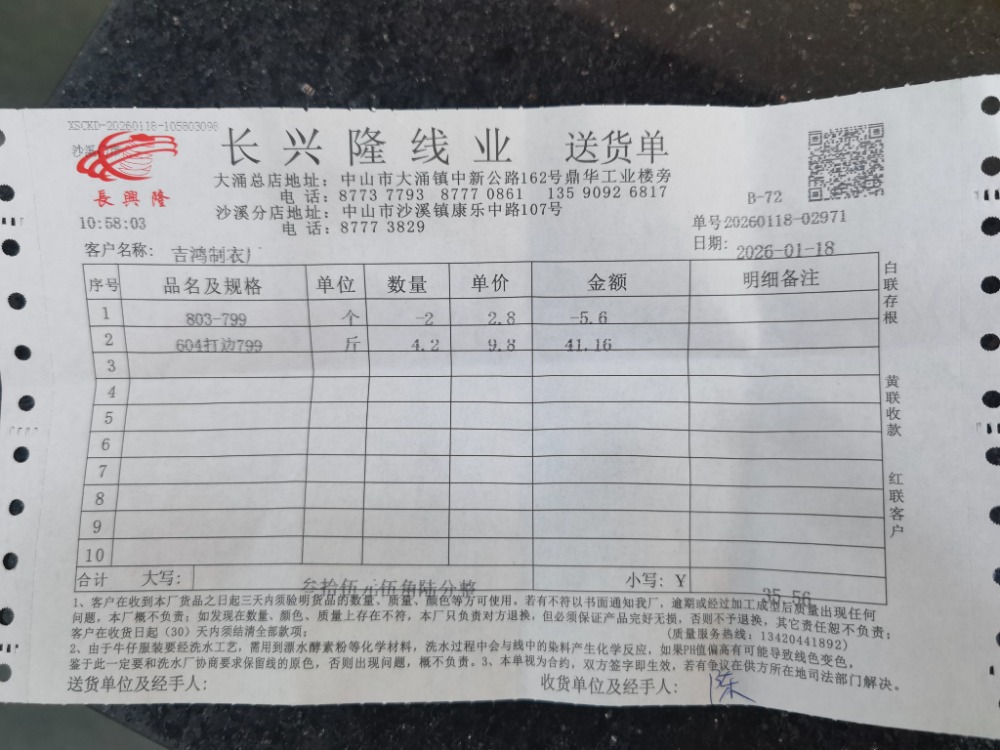 XSCKD-20260118-105803098
长兴隆线业 送货单
長興隆
大涌总店地址：中山市大涌镇中新公路162号鼎华工业楼旁
电 话：8773 7793 8777 0861 135 9092 6817
沙溪分店地址：中山市沙溪镇康乐中路107号
电 话：8777 3829
B-72
10:58:03
单号20260118-02971
客户名称： 吉鸿制衣厂
日期： 2026-01-18
序号 品名及规格 单位 数量 单价 金额 明细备注
1 803-799 个 -2 2.8 -5.6
2 604打边799 斤 4.2 9.8 41.16
3
4
5
6
7
8
9
10
合计 大写： 叁拾伍元伍角陆分整 小写：￥ 35.56
白联存根
黄联收款
红联客户
1、客户在收到本厂货品之日起三天内须验明货品的数量、质量、颜色等方可使用。若有不符以书面通知我厂，逾期或经过加工成型后质量出现任何
问题，本厂概不负责；如发现在数量、颜色、质量上存在不符，本厂只负责对方退换，但必须保证产品完好无损，否则不予退换，其它责任恕不负责；
客户在收货日起（30）天内须结清全部款项； （质量服务热线：13420441892）
2、由于牛仔服装要经洗水工艺，需用到漂水酵素粉等化学材料，洗水过程中会与线中的染料产生化学反应，如果PH值偏高有可能导致线色变色，
鉴于此一定要和洗水厂协商要求保留线的原色，否则出现问题，概不负责。3、本单视为合约，双方签字即生效，若有争议在供方所在地司法部门解决。
送货单位及经手人： 收货单位及经手人： 陈